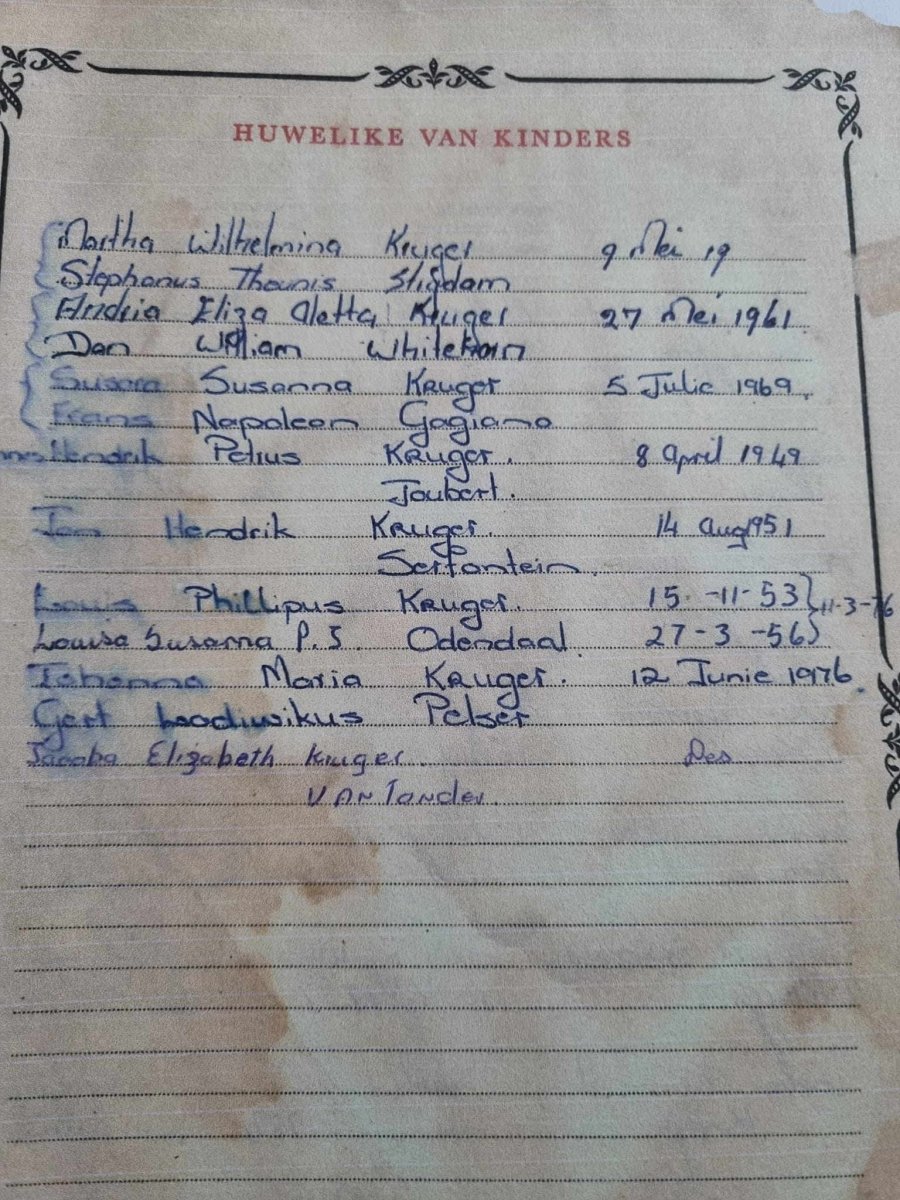 HUWELIKE VAN KINDERS
Martha Wilhelmina Kruger 9 Mei 19
Stephanus Theunis Stigdam
Andria Eliza Aletta Kruger 27 Mei 1961
Dan William
Susara Susanna Kruger 5 Julie 1969.
Frans Napoleon Gagiano
Hendrik Petrus Kruger. 8 April 1949
Joubert.
Jan Hendrik Kruger. 14 Aug 1951
Serfontein.
Louis Phillipus Kruger. 15-11-53 } 11-3-76
Louisa Susanna P.S. Odendaal 27-3-56
Johanna Maria Kruger. 12 Junie 1976.
Gert Lodiwikus Pelser
Jacoba Elizabeth Kruger. Des
VAN Tonder.